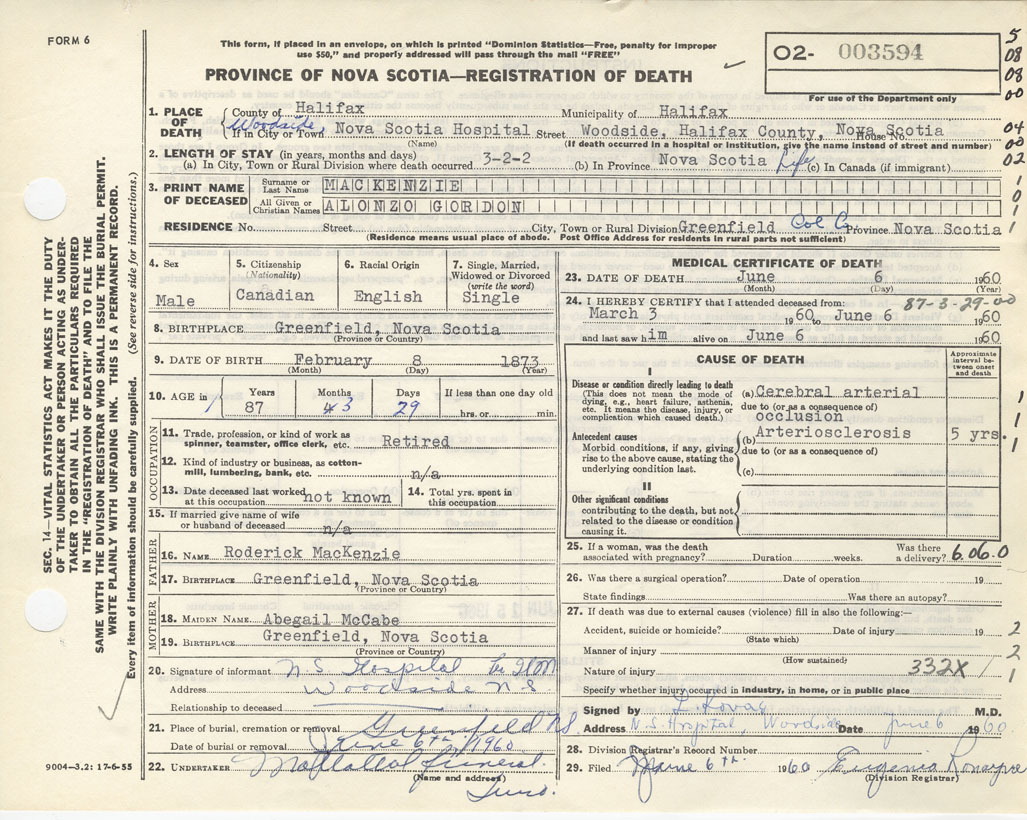 FORM 6
This form, if placed in an envelope, on which is printed "Dominion Statistics—Free, penalty for improper
use $50," and properly addressed will pass through the mail "FREE"
PROVINCE OF NOVA SCOTIA—REGISTRATION OF DEATH
02- 003594
For use of the Department only
5
08
08
00
04
00
02
1
0
1
1
1. PLACE OF DEATH
County of Halifax Municipality of Halifax
Woodside
If in City or Town Nova Scotia Hospital Street Woodside, Halifax County, Nova Scotia House No.
(Name) (If death occurred in a hospital or institution, give the name instead of street and number)
2. LENGTH OF STAY (in years, months and days)
(a) In City, Town or Rural Division where death occurred 3-2-2 (b) In Province Nova Scotia Life (c) In Canada (if immigrant)
3. PRINT NAME OF DECEASED
Surname or Last Name MACKENZIE
All Given or Christian Names ALONZO GORDON
RESIDENCE No. Street City, Town or Rural Division Greenfield Col C Province Nova Scotia
(Residence means usual place of abode. Post Office Address for residents in rural parts not sufficient)
4. Sex
Male
5. Citizenship
(Nationality)
Canadian
6. Racial Origin
English
7. Single, Married,
Widowed or Divorced
(write the word)
Single
8. BIRTHPLACE Greenfield, Nova Scotia
(Province or Country)
9. DATE OF BIRTH February 8 1873
(Month) (Day) (Year)
10. AGE in Years Months Days If less than one day old
87 3 29 hrs. or min.
OCCUPATION
11. Trade, profession, or kind of work as
spinner, teamster, office clerk, etc. Retired
12. Kind of industry or business, as cotton-
mill, lumbering, bank, etc. n/a
13. Date deceased last worked
at this occupation not known
14. Total yrs. spent in
this occupation
15. If married give name of wife
or husband of deceased n/a
FATHER
16. NAME Roderick MacKenzie
17. BIRTHPLACE Greenfield, Nova Scotia
(Province or Country)
MOTHER
18. MAIDEN NAME Abegail McCabe
19. BIRTHPLACE Greenfield, Nova Scotia
(Province or Country)
20. Signature of informant N.S. Hospital
Address Woodside N.S.
Relationship to deceased
21. Place of burial, cremation or removal Greenfield NS
Date of burial or removal June 6th 1960
22. UNDERTAKER Funeral
(Name and address)
MEDICAL CERTIFICATE OF DEATH
23. DATE OF DEATH June 6 1960
(Month) (Day)
24. I HEREBY CERTIFY that I attended deceased from: 87-3-29-00
March 3 1960 to June 6 1960
and last saw him alive on June 6 1960
CAUSE OF DEATH
Approximate
interval be-
tween onset
and death
I
Disease or condition directly leading to death
(This does not mean the mode of
dying, e.g., heart failure, asthenia,
etc. It means the disease, injury, or
complication which caused death.)
(a) Cerebral arterial
due to (or as a consequence of)
occlusion
Antecedent causes
Morbid conditions, if any, giving
rise to the above cause, stating the
underlying condition last.
(b) Arteriosclerosis 5 yrs.
due to (or as a consequence of)
(c)
1
1
1
II
Other significant conditions
contributing to the death, but not
related to the disease or condition
causing it.
25. If a woman, was the death
associated with pregnancy? Duration weeks. Was there
a delivery? 6.06.0
26. Was there a surgical operation? Date of operation 19
State findings Was there an autopsy?
27. If death was due to external causes (violence) fill in also the following:—
Accident, suicide or homicide? Date of injury 19 2
(State which)
Manner of injury 2
(How sustained)
Nature of injury 332X 1 1
Specify whether injury occurred in industry, in home, or in public place
Signed by M.D.
Address N.S. Hospital, Woodside Date June 6 1960
28. Division Registrar's Record Number
29. Filed June 6th 1960 Eugenia
(Division Registrar)
9004—3.2: 17-6-55
SEC. 14—VITAL STATISTICS ACT MAKES IT THE DUTY
OF THE UNDERTAKER OR PERSON ACTING AS UNDER-
TAKER TO OBTAIN ALL THE PARTICULARS REQUIRED
IN THE "REGISTRATION OF DEATH" AND TO FILE THE
SAME WITH THE DIVISION REGISTRAR WHO SHALL ISSUE THE BURIAL PERMIT.
WRITE PLAINLY WITH UNFADING INK. THIS IS A PERMANENT RECORD.
Every item of information should be carefully supplied. (See reverse side for instructions.)